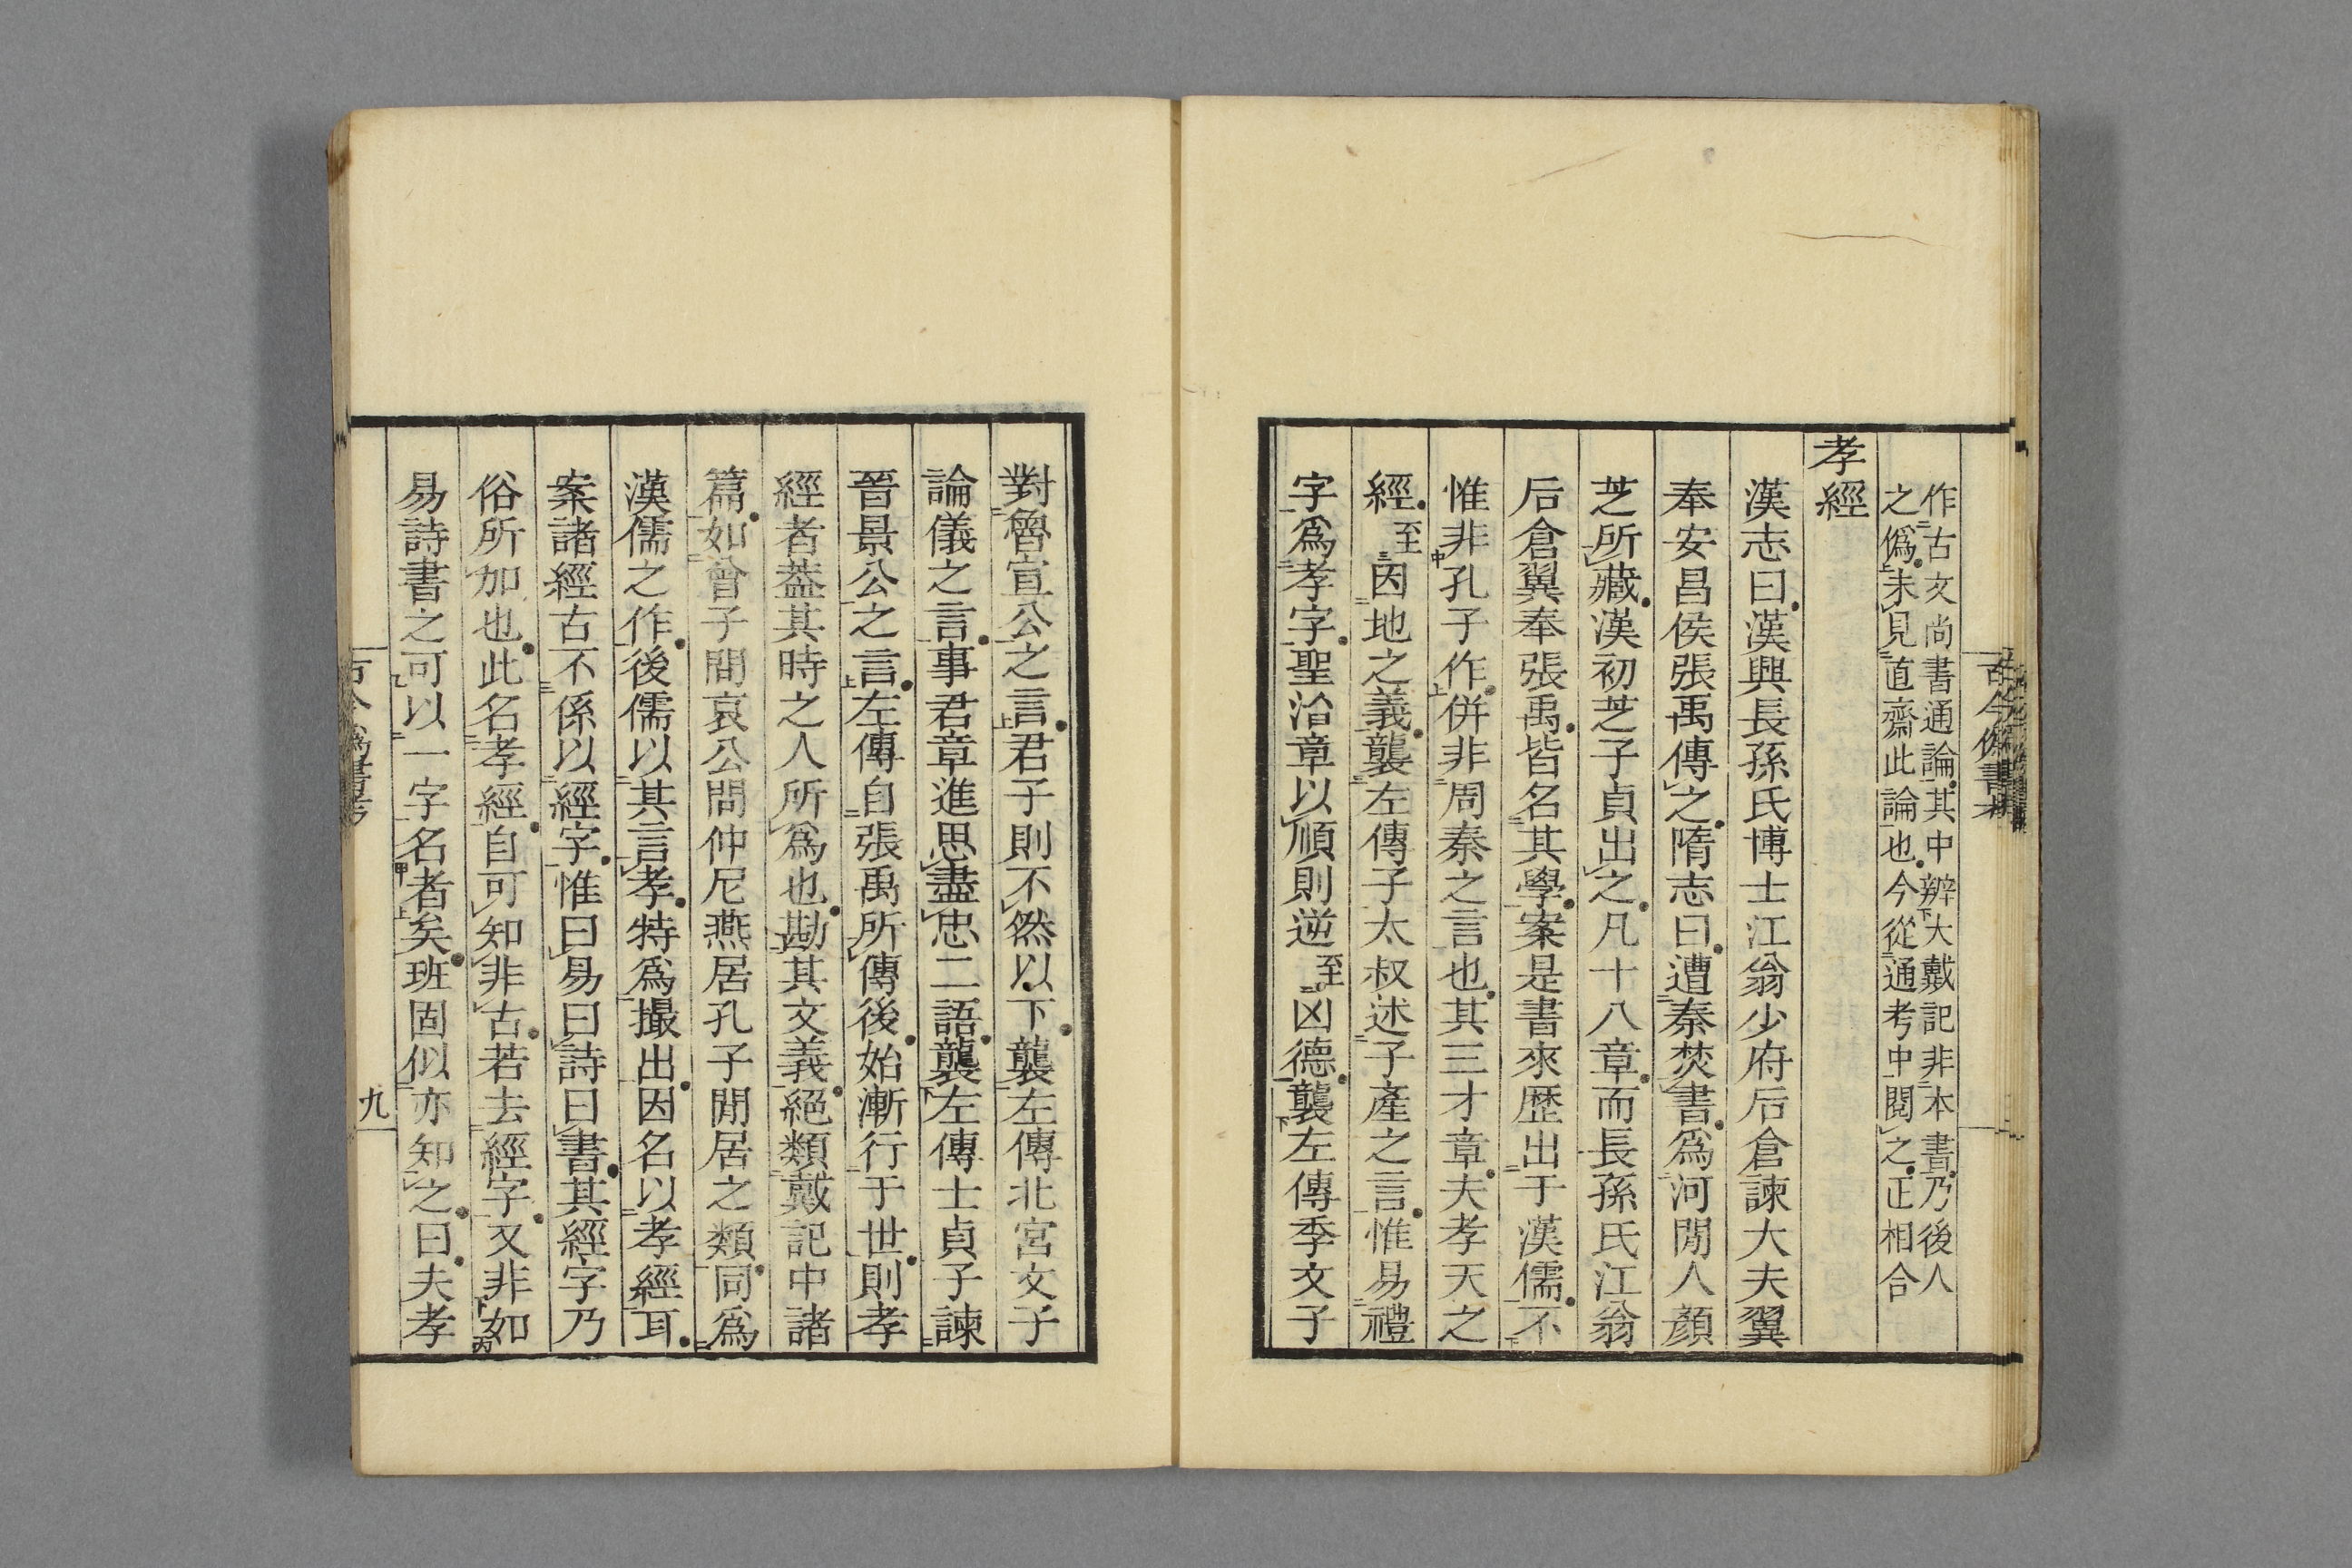 古今僞書考
作古文尚書通論其中辨大戴記非本書乃後人
之僞未見直齋此論也今從通考中閱之正相合
孝經
漢志曰漢興長孫氏博士江翁少府后倉諫大夫翼
奉安昌侯張禹傳之隋志曰遭秦焚書爲河間人顏
芝所藏漢初芝子貞出之凡十八章而長孫氏江翁
后倉翼奉張禹皆名其學案是書來歷出于漢儒不
惟非孔子作併非周秦之言也其三才章夫孝天之
經至因地之義襲左傳子太叔述子產之言惟易禮
字爲孝字聖治章以順則逆至凶德襲左傳季文子
對魯宣公之言君子則不然以下襲左傳北宮文子
論儀之言事君章進思盡忠二語襲左傳士貞子諫
晉景公之言左傳自張禹所傳後始漸行于世則孝
經者葢其時之人所爲也勘其文義絕類戴記中諸
篇如曾子問哀公問仲尼燕居孔子閒居之類同爲
漢儒之作後儒以其言孝特爲撮出因名以孝經耳
案諸經古不係以經字惟曰易曰詩曰書其經字乃
俗所加也此名孝經自可知非古若去經字又非如
易詩書之可以一字名者矣班固似亦知之曰夫孝
古今僞書考
九